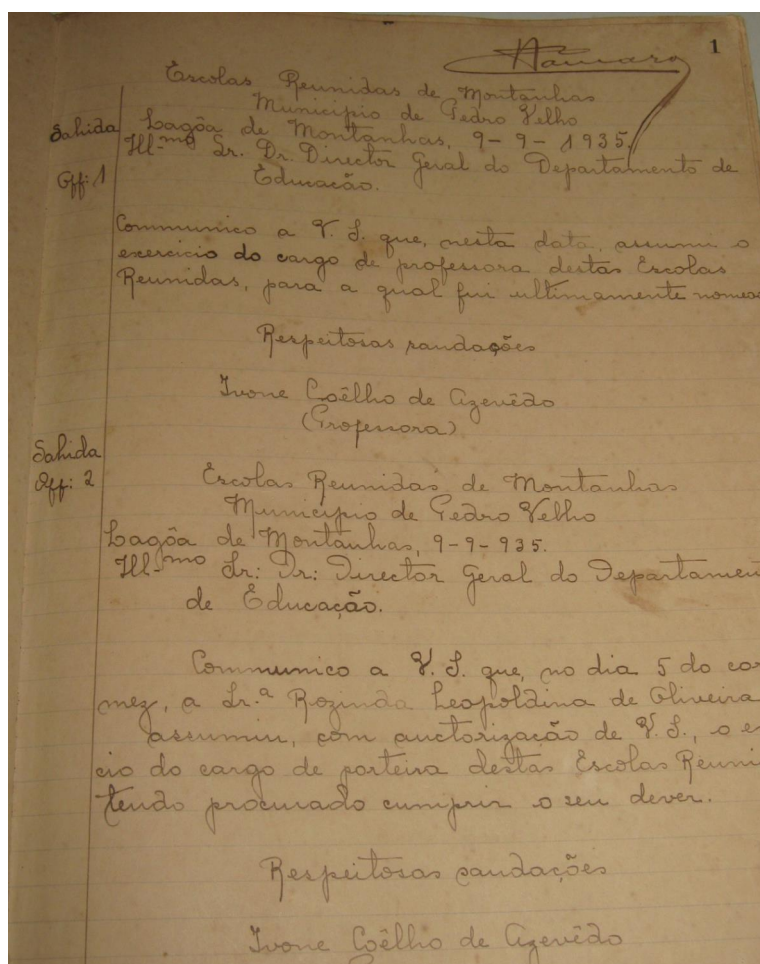 1
Escolas Reunidas de Montanhas
Municipio de Pedro Velho
Sahida Lagôa de Montanhas, 9-9-1935.
Ill-mo Sr. Dr. Director Geral do Departamento de
Off: 1 Educação.
Communico a V. S. que, nesta data, assumi o
exercicio do cargo de professora destas Escolas
Reunidas, para a qual fui ultimamente nomea
Respeitosas saudações
Ivone Coêlho de Azevêdo
(Professora)
Sahida
Off: 2 Escolas Reunidas de Montanhas
Municipio de Pedro Velho
Lagôa de Montanhas, 9-9-935.
Ill-mo Sr: Dr: Director Geral do Departamen
de Educação.
Communico a V. S. que, no dia 5 do co
mez, a Sr.a Rozinda Leopoldina de Oliveira
assumiu, com auctorização de V. S., o e
cio do cargo de porteira destas Escolas Reuni
tendo procurado cumprir o seu dever.
Respeitosas saudações
Ivone Coêlho de Azevêdo